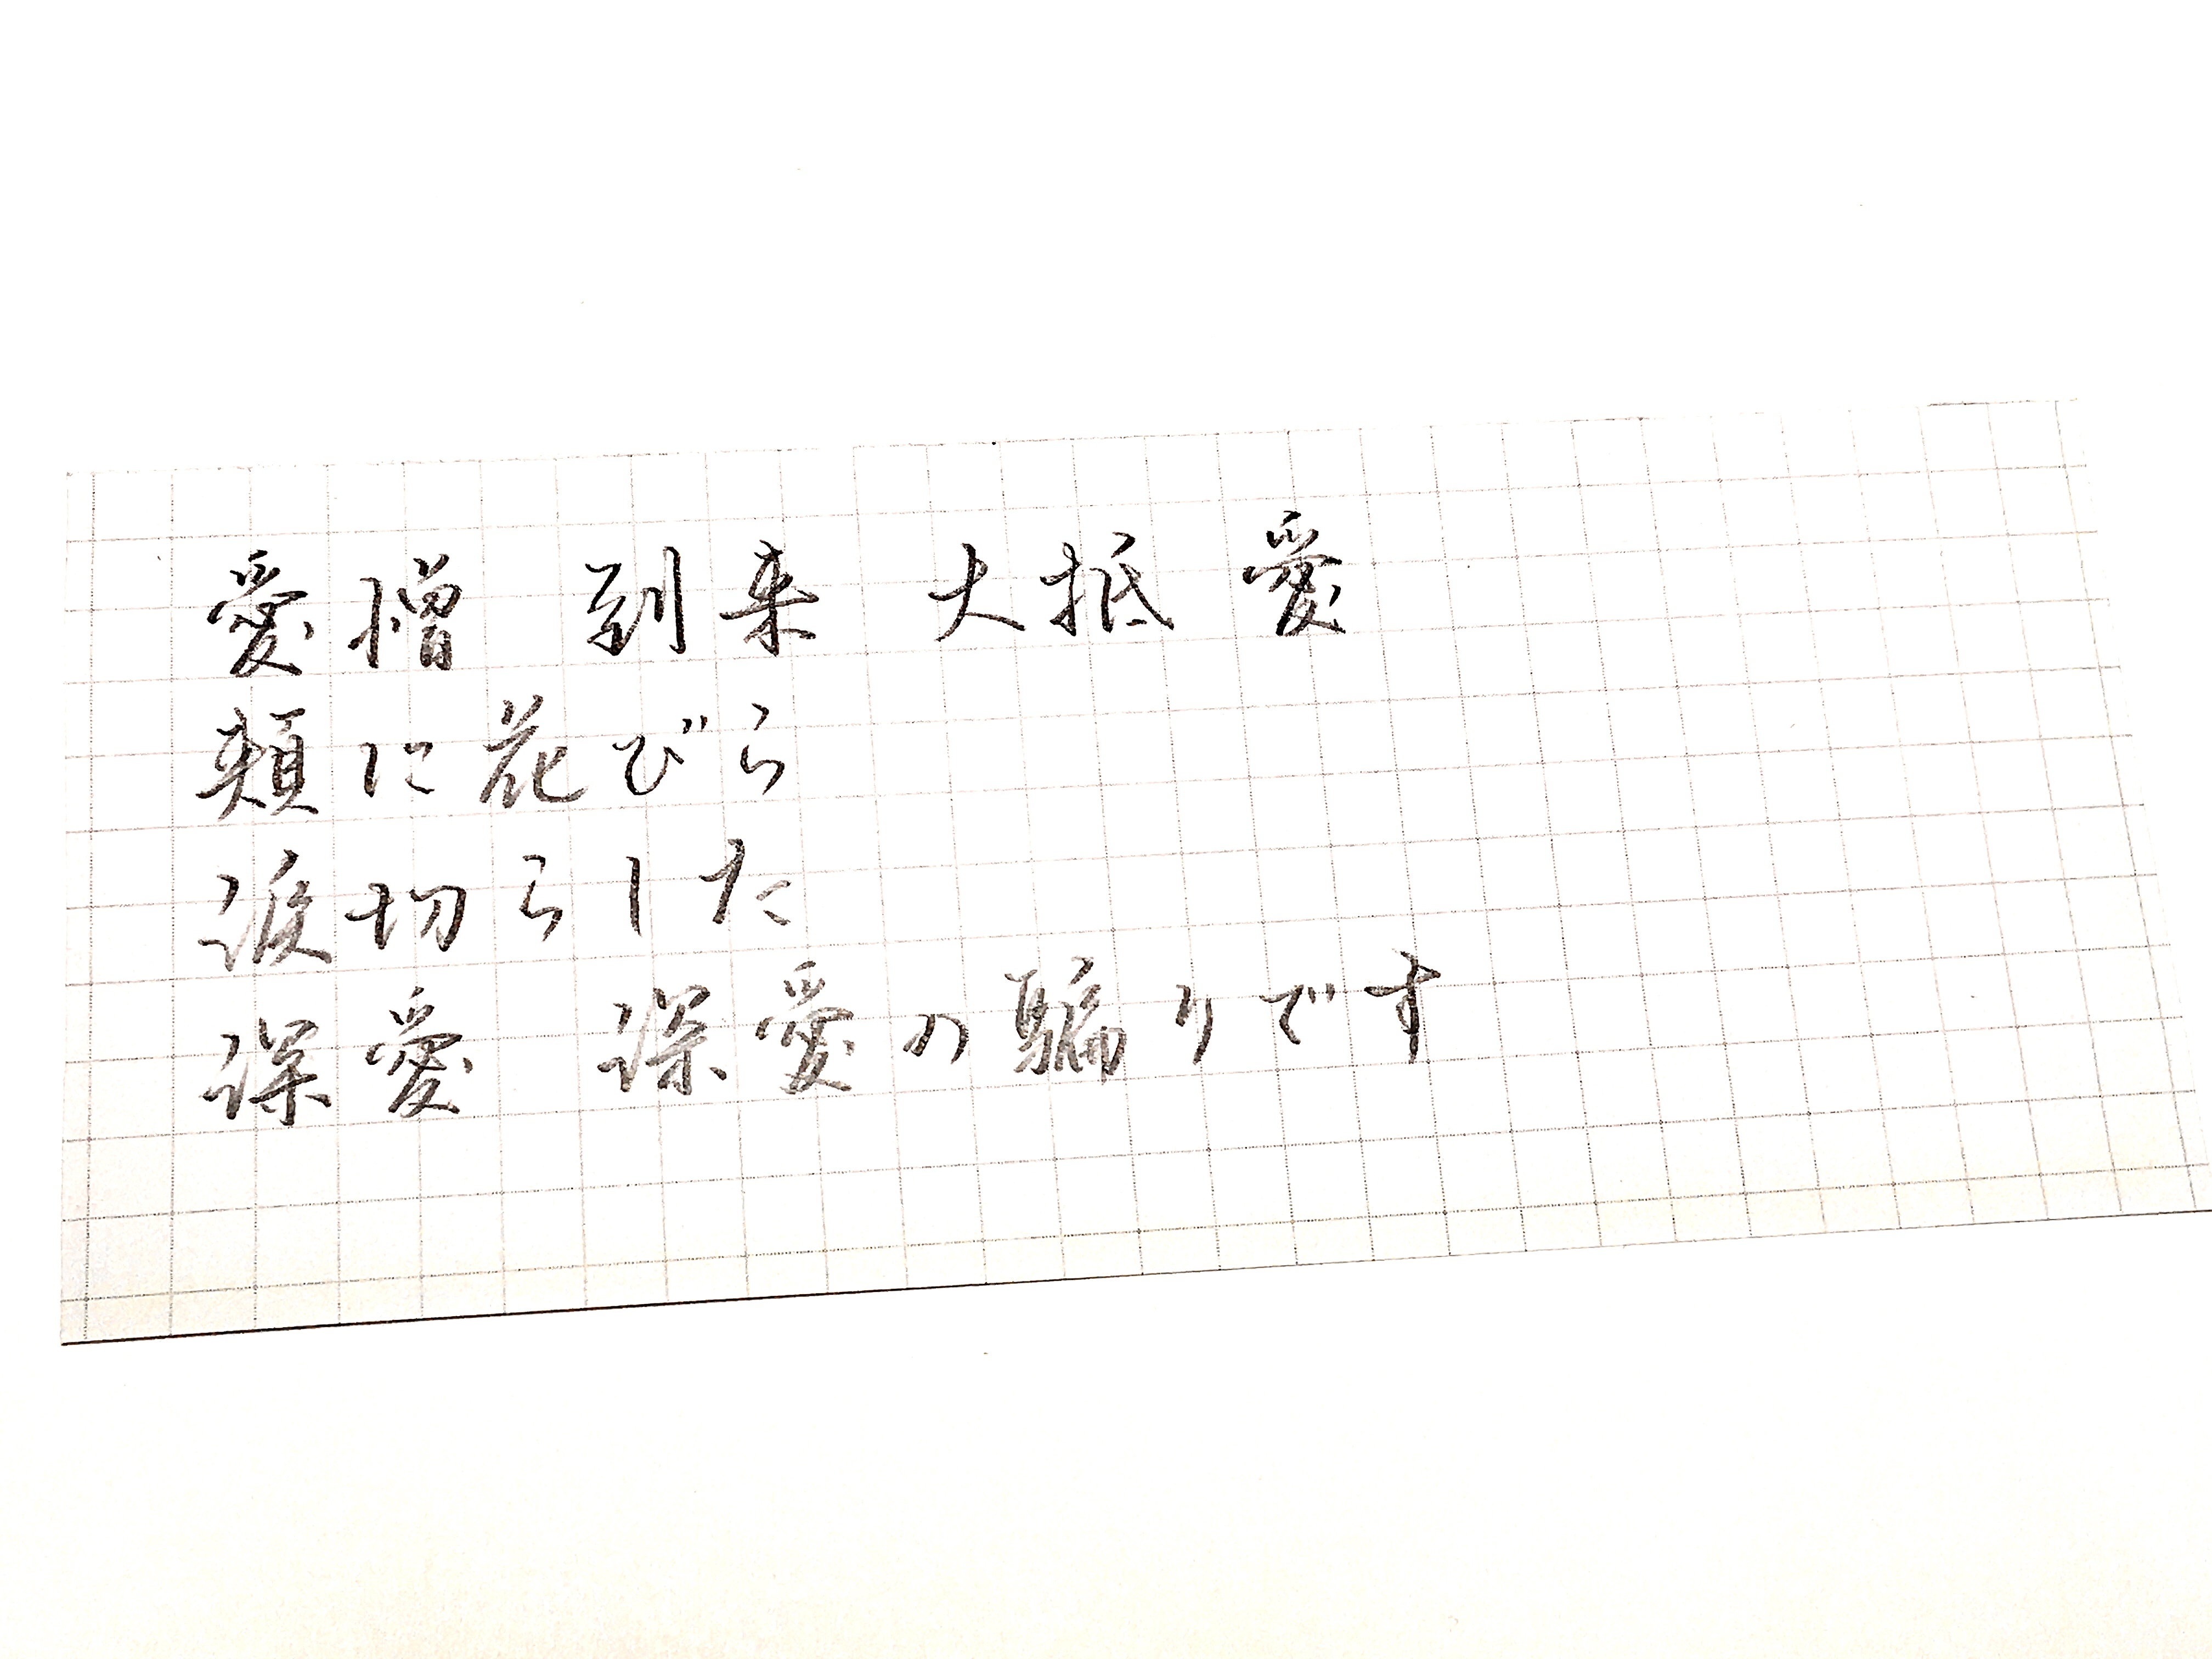 愛憎 到来 大抵 愛
頬に花びら
涙切らした
深愛 深愛の騙りです